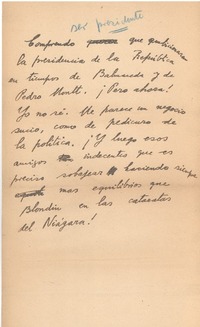 ser presidente
Comprendo que quisieran
la presidencia de la República
en tiempos de Balmaceda y de
Pedro Montt. ¡Pero ahora!
¡Yo no sé. Me parece un negocio
sucio, como de pedicuro de
la política. ¡Y luego esos
amigos indecentes que es
preciso sobajear haciendo siempre
mas equilibrios que
Blondin en las cataratas
del Niágara!